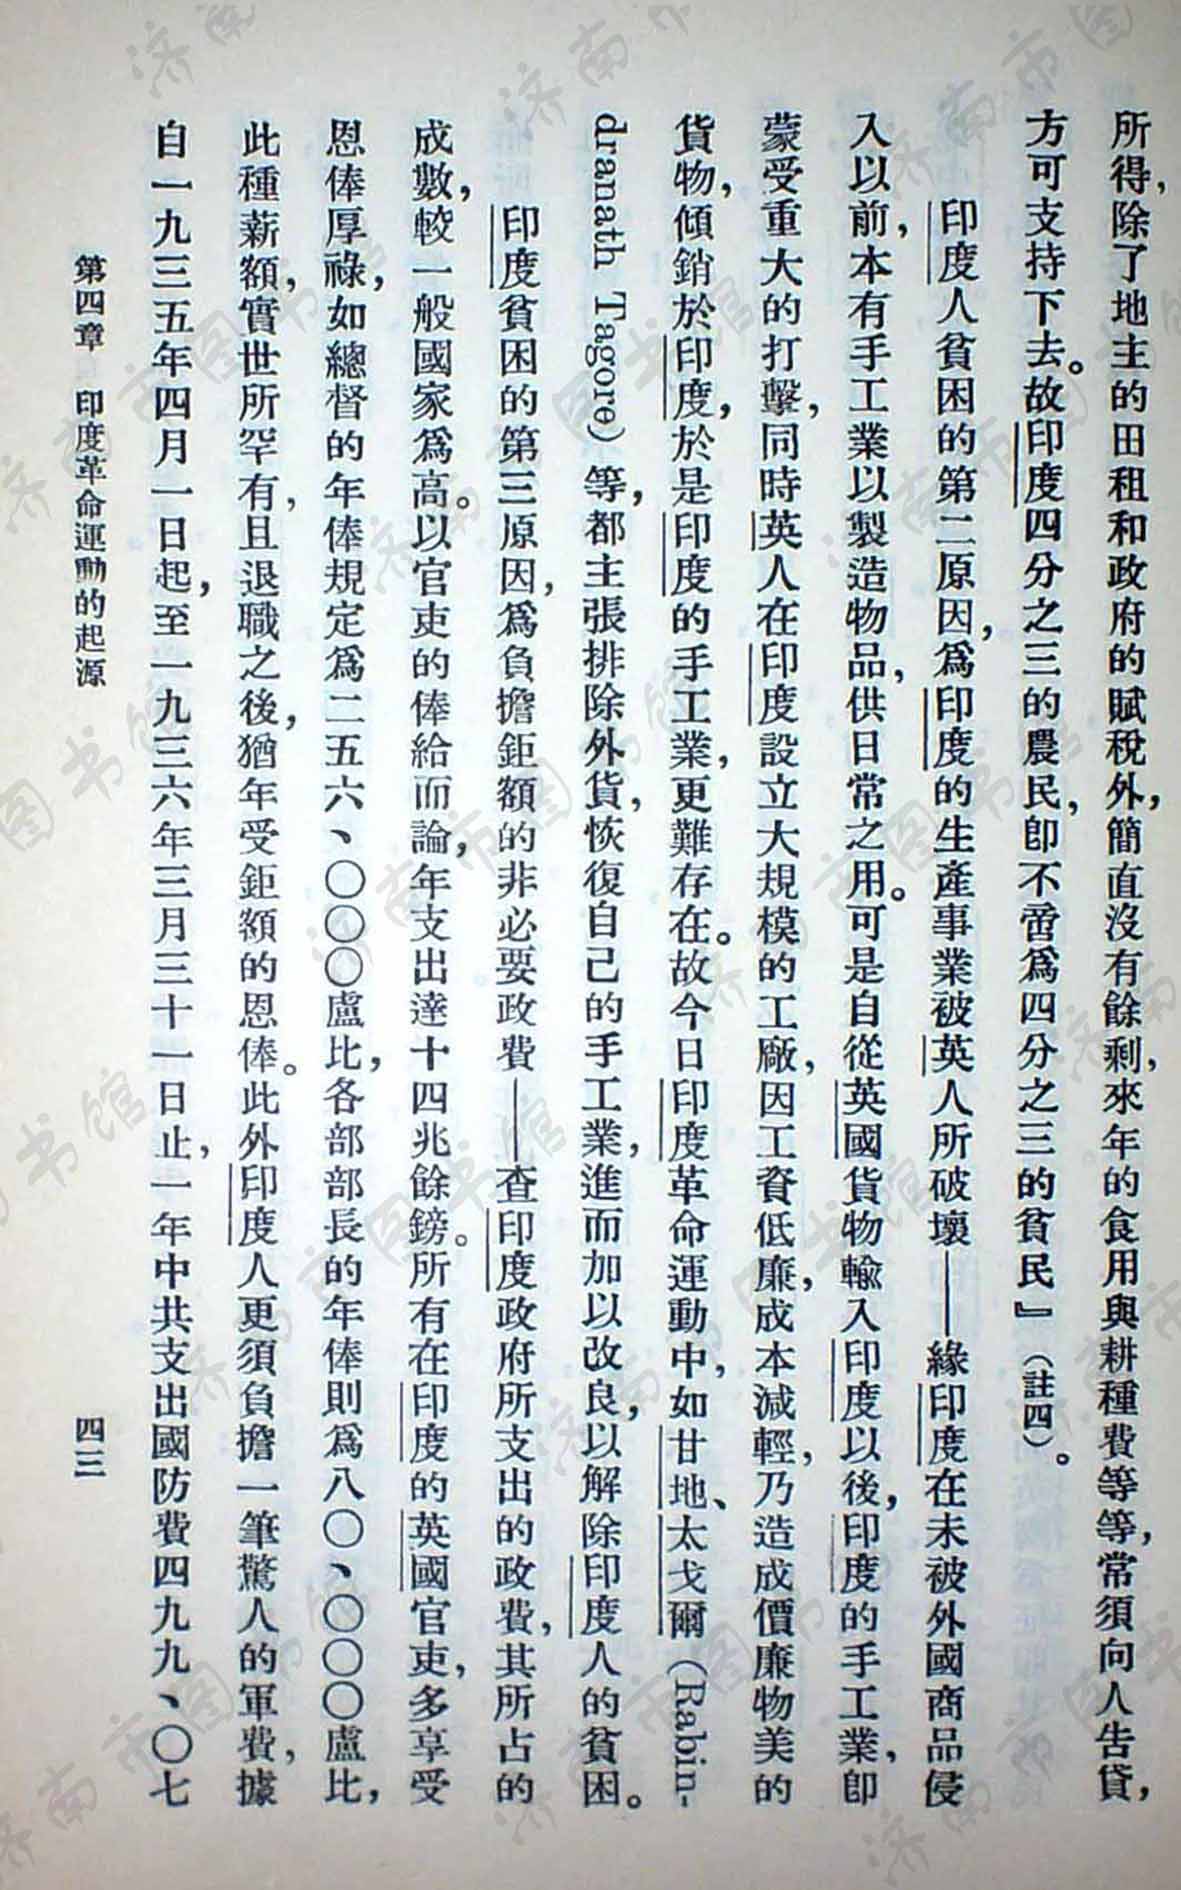 所得，除了地主的田租和政府的賦稅外，簡直沒有餘剩，來年的食用與耕種費等等，常須向人告貸，
方可支持下去。故印度四分之三的農民，卽不啻爲四分之三的貧民』（註四）。
印度人貧困的第二原因，爲印度的生產事業被英人所破壞——緣印度在未被外國商品侵
入以前，本有手工業以製造物品，供日常之用。可是自從英國貨物輸入印度以後，印度的手工業，卽
蒙受重大的打擊，同時英人在印度設立大規模的工廠，因工資低廉，成本減輕，乃造成價廉物美的
貨物，傾銷於印度，於是印度的手工業，更難存在。故今日印度革命運動中，如甘地、太戈爾（Rabin-
dranath Tagore）等，都主張排除外貨，恢復自己的手工業，進而加以改良，以解除印度人的貧困。
印度貧困的第三原因，爲負擔鉅額的非必要政費——查印度政府所支出的政費，其所占的
成數，較一般國家爲高。以官吏的俸給而論，年支出達十四兆餘鎊。所有在印度的英國官吏，多享受
恩俸厚祿，如總督的年俸規定爲二五六、〇〇〇盧比，各部部長的年俸則爲八〇、〇〇〇盧比，
此種薪額，實世所罕有，且退職之後，猶年受鉅額的恩俸。此外印度人更須負擔一筆驚人的軍費，據
自一九三五年四月一日起，至一九三六年三月三十一日止，一年中共支出國防費四九九、〇七
第四章　印度革命運動的起源　四三
济南市图书馆